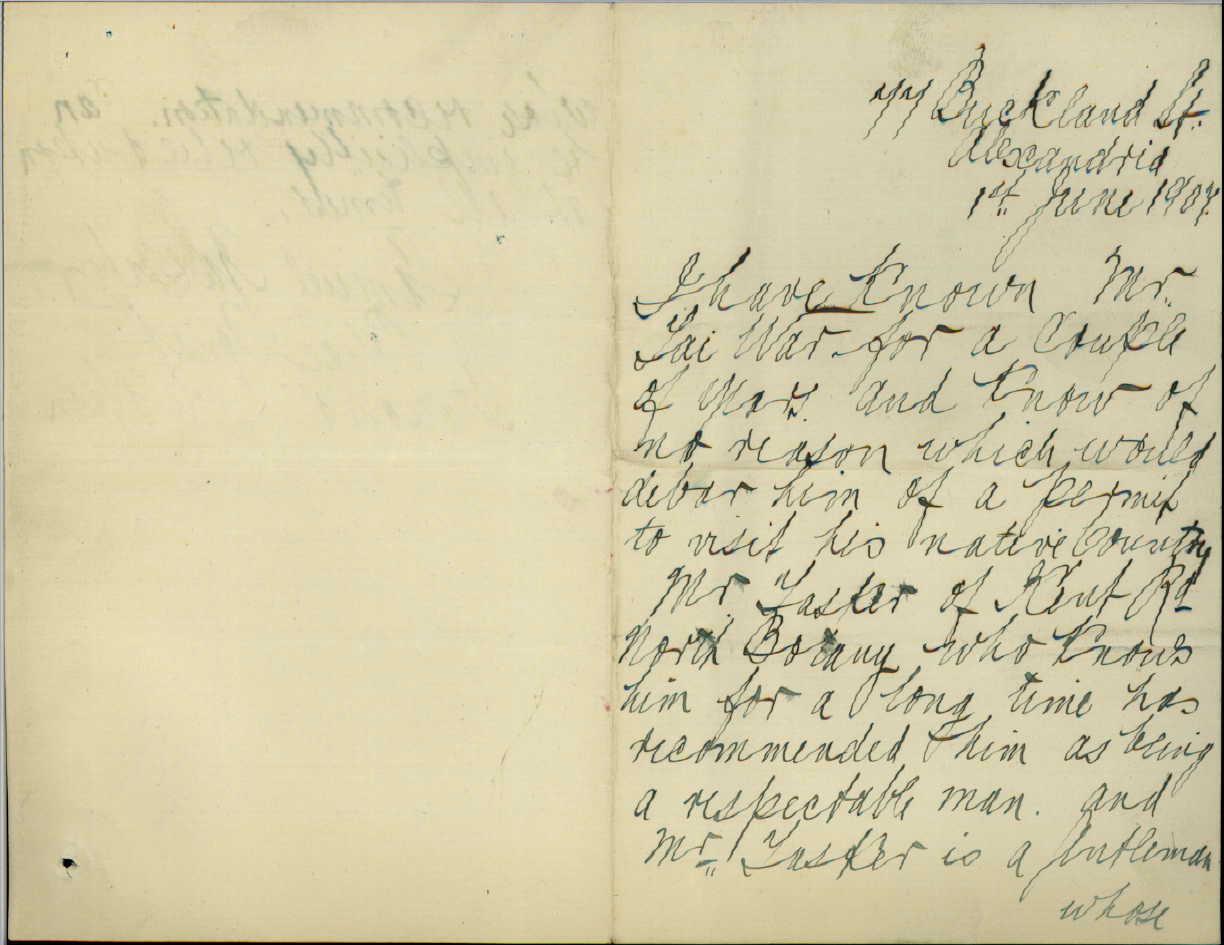 77 Buckland St.
Alexandria
1st June 1907.
I have Known Mr.
Tai War for a Couple
of years and Know of
no reason which would
debar him of a permit
to visit his native Country
Mr. Tasker of Kent Rd
North Botany who Knows
him for a long time has
recommended him as being
a respectable man. and
Mr. Tasker is a gentleman
whose